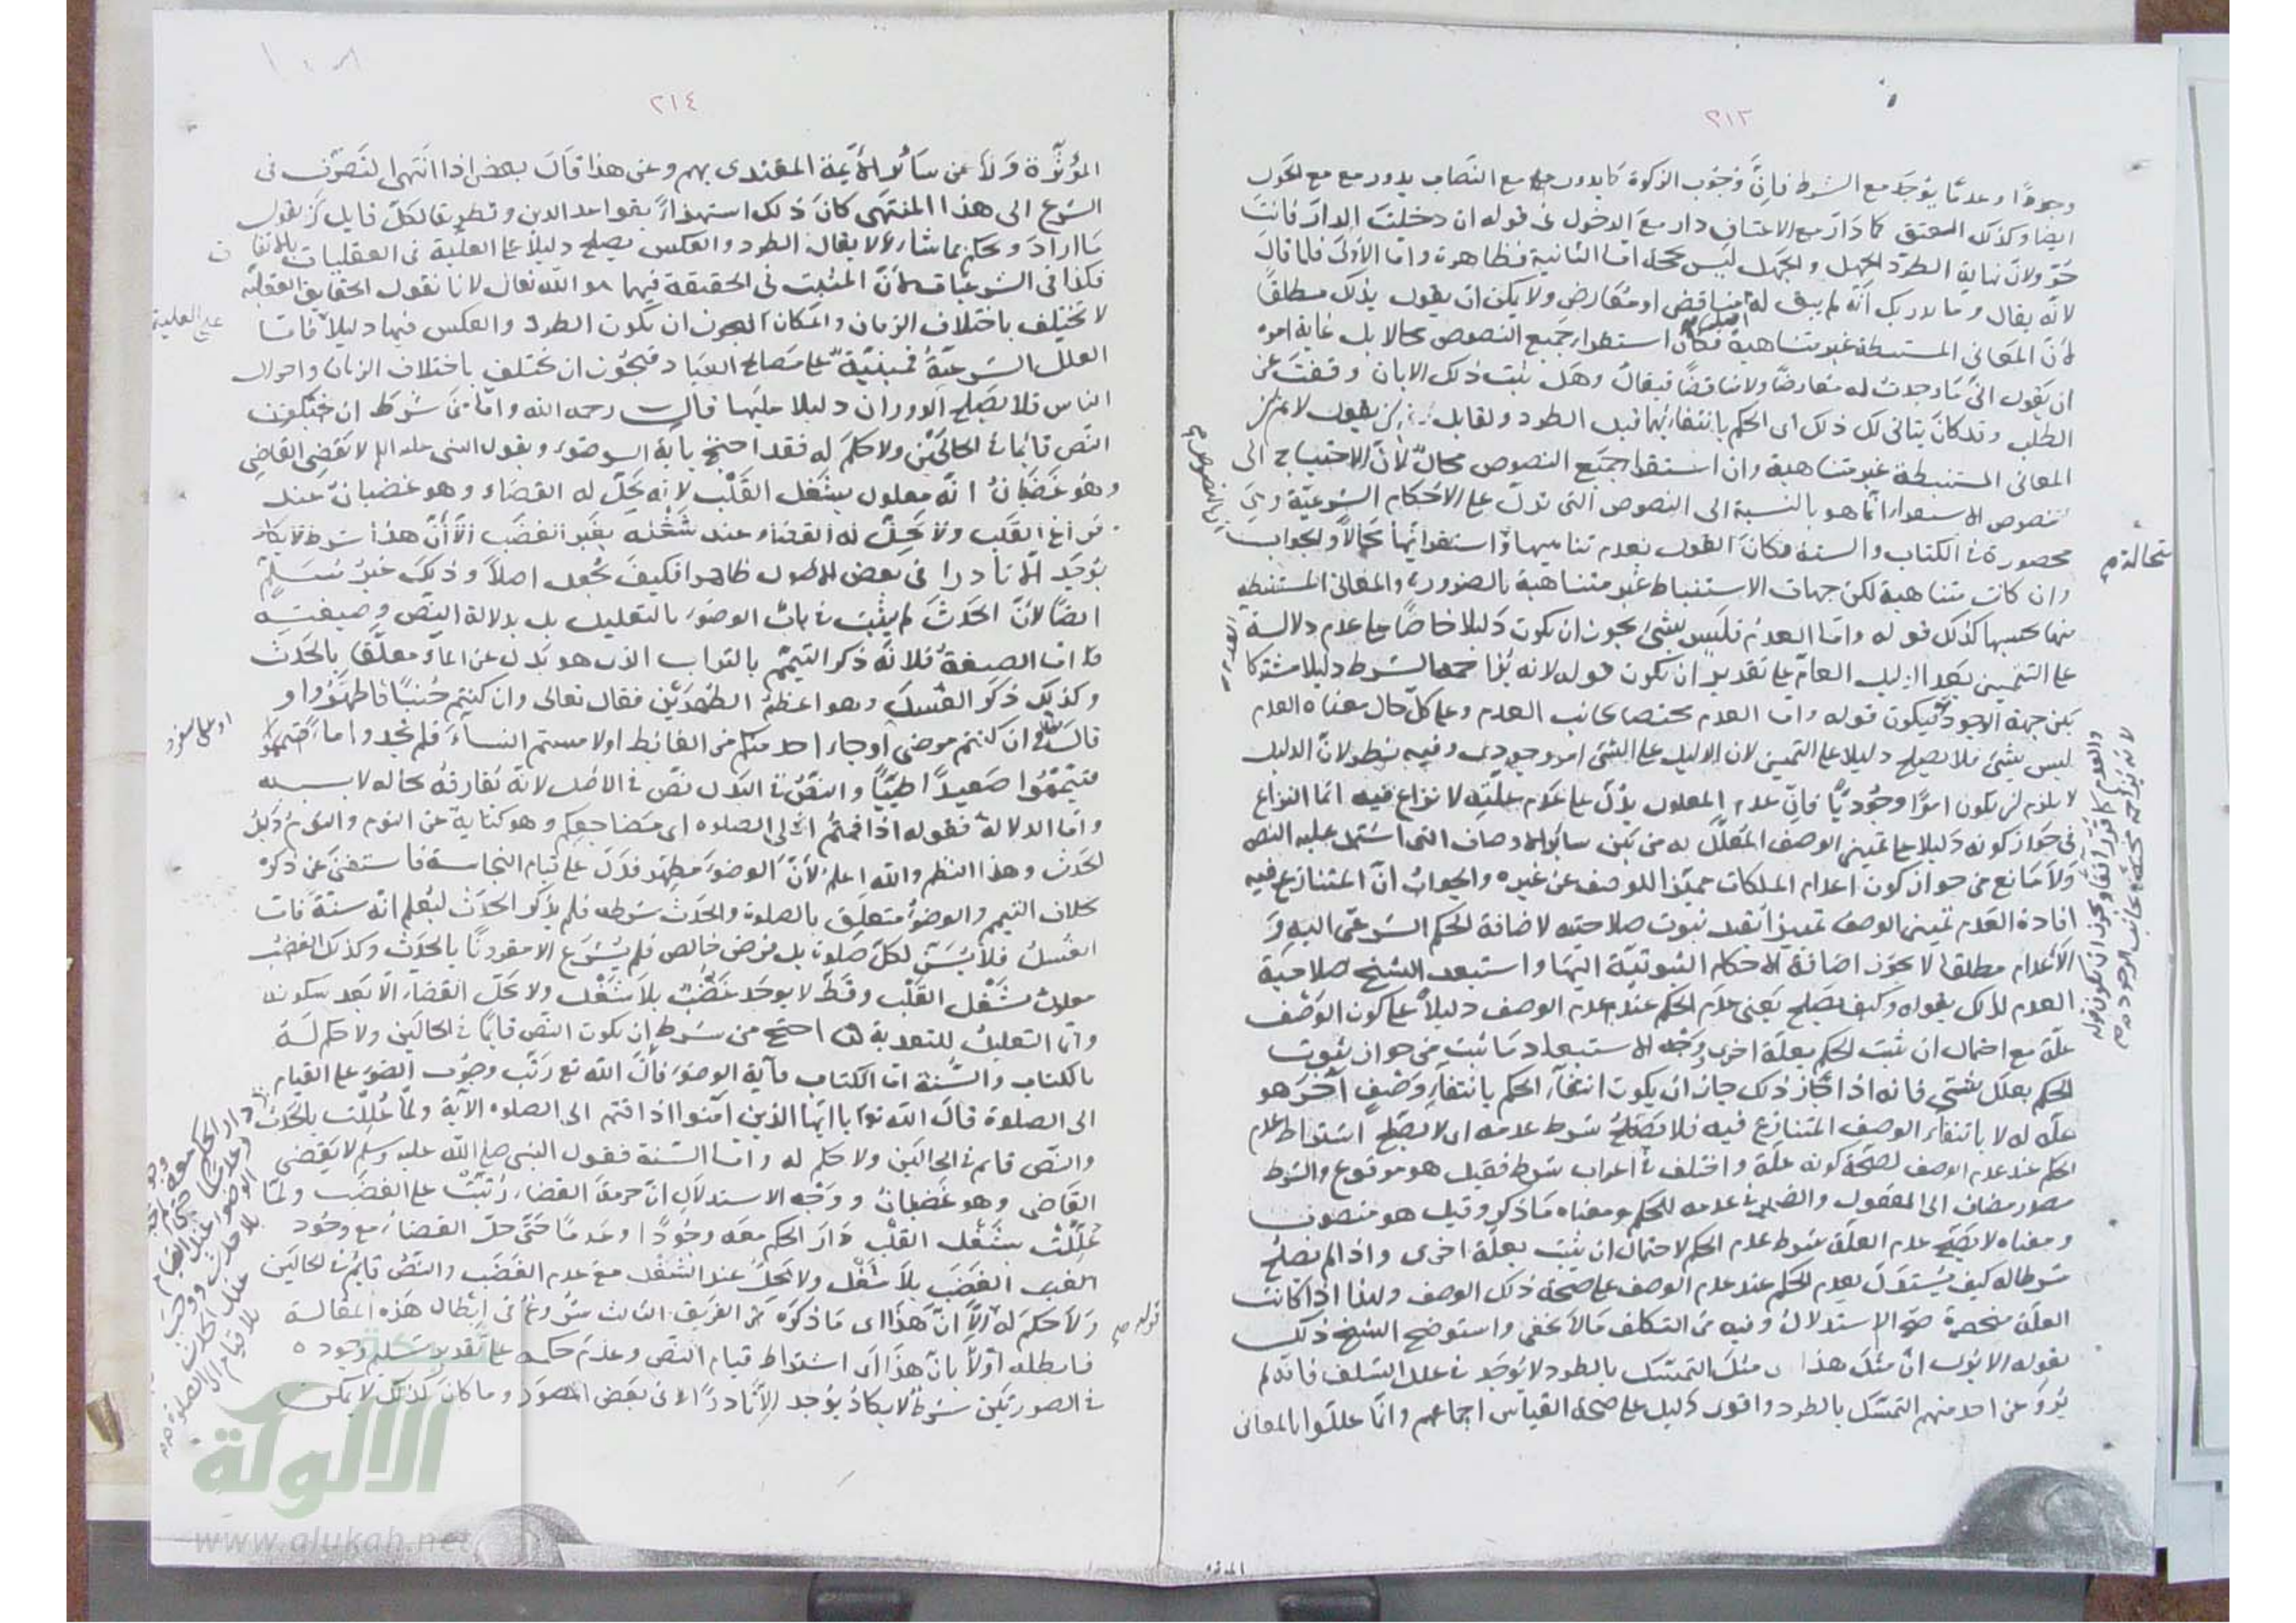 ٢١٣
وجودًا وعدمًا يوجد مع الشرط فان وجوب الزكوة كما يدور مع النصاب يدور مع الحول
ايضا وكذلك العتق كما دار مع الاعتاق دار مع الدخول فى قوله ان دخلت الدار فانت
حر ولان نهاية الطرد الجهل والجهل ليس بحجة اما الثانية فظاهرة واما الاولى فلما قال
لانه يقال وما يدريك انه لم يبق له مناقض او معارض ولا يمكن ان يقول يذلك مطلقًا
لان المعانى المستنبطة غير متناهية فكان استقراء جميع النصوص محالا بل غاية امره
ان يقول انى ما وجدت له معارضًا ولا مناقضًا فيقال وهل ثبت ذلك الا بان وقفت عن
الطلب وقد كان يتاتى لك ذلك اى الحكم بانتفائهما قبل الطرد ولقايل ان يقول لا نم ان
المعانى المستنبطة غير متناهية وان استقراء جميع النصوص محال لان الاحتياج الى
الاستقراء انما هو بالنسبة الى النصوص التى تدل على الاحكام الشرعية وهى
محصورة فى الكتاب والسنة فكان القول بعدم تناهيها واستقرائها محالا والجواب
وان كانت متناهية لكن جهات الاستنباط غير متناهية بالضرورة والمعانى المستنبطة
منها بحسبها كذلك قوله واما العدم فليس بشئ يجوز ان يكون دليلا خاصًا على عدم دلالة
على التنجيس بعد الدليل العام على تقدير ان يكون قوله لانه يزاحمه الشرط دليلا مشتركا
بين جهة الوجود فيكون قوله واما العدم مختصا بجانب العدم وعلى كل حال معناه العدم
ليس بشئ فلا يصلح دليلا على التميز لان الدليل على الشئ امر وجودى وفيه نظر لان الدليل
لا يلزم ان يكون امرًا وجوديًا فان عدم المعلول يدل على عدم علته لا نزاع فيه انما النزاع
فى جواز كونه دليلا على تميز الوصف المعلل له من بين سائر الاوصاف التى اشتمل عليه النص
ولا مانع من جواز كون اعدام الملكات مميزا للوصف عن غيره والجواب ان المتنازع فيه
افادة العدم تميز الوصف تمييزا بعد ثبوت صلاحيته لاضافة الحكم الشرعى اليه و
الاعدام مطلقا لا يجوز اضافة الاحكام الثبوتية اليها واستبعد الشيخ صلاحية
العدم لذلك بقوله وكيف يصلح يعنى عدم الحكم عند عدم الوصف دليلا على كون الوصف
علة مع احتمال ان ثبت الحكم بعلة اخرى وجه الاستبعاد ما ثبت من جواز ثبوت
الحكم بعلل شتى فانه اذا جاز ذلك جاز ان يكون انتفاء الحكم بانتفاء وصف آخر هو
علة له لا بانتفاء الوصف المتنازع فيه فلا يصلح شرط عدمه اى لا يصلح اشتراط عدم
الحكم عند عدم الوصف لصحة كونه علة واختلف فى اعراب شرط فقيل هو مرفوع والشرط
مصدر مضاف الى المفعول والضمير فى عدمه للحكم ومعناه ما ذكر وقيل هو منصوب
ومعناه لا يصلح عدم العلة شرط عدم الحكم لاحتمال ان يثبت بعلة اخرى واذا لم يصلح
شرطا له كيف يستدل بعدم الحكم عند عدم الوصف على صحة ذلك الوصف ولهذا اذا كانت
العلة منحصرة صح الاستدلال وفيه من التكلف ما لا يخفى واستوضح الشيخ ذلك
بقوله الا يرى ان مثل هذا التمسك بالطرد لا يوجد فى علل السلف فانه لم
يرو عن احد منهم التمسك بالطرد واقوى دليل على صحة القياس اجماعهم وانما عللوا بالمعانى
استحالة م
والعدم كما قرر آنفا ويجوز ان يكون قوله
لانه يزاحمه مختصة بجانب الوجود م
٢١٤
١٠٨
المؤثرة ولا عن سائر الائمة المقتدى بهم وعن هذا قال بعض اذا انتهى التصرف فى
الشرع الى هذا المنتهى كان ذلك استهزاء بقواعد الدين وتطريقا لكل قايل ان يقول
ما اراد ويحكم بما شاء ولا يقال الطرد والعكس يصلح دليلا على العلية فى العقليات بالاتفاق
فكذا فى الشرعيات لان المثبت فى الحقيقة فيهما هو الله تعالى لانا نقول الحقايق العقلية
لا تختلف باختلاف الزمان والمكان فيجوز ان يكون الطرد والعكس فيها دليلا فاما
العلل الشرعية فمبنية على مصالح العباد فيجوز ان تختلف باختلاف الزمان واحوال
الناس فلا يصلح الدوران دليلا عليها قال رحمه الله واما من شرط ان يكون
النص قائما فى الحالين ولا حكم له فقد احتج بآية الوضوء وبقول النبى عليه السلم لا يقضى القاضى
وهو غضبان انه معلول بشغل القلب لانه يحل له القضاء وهو غضبان عند
فراغ القلب ولا يحل له القضاء عند شغله بغير الغضب الا ان هذا شرط لا يكاد
يوجد الا نادرا فى بعض الاصول ظاهرا فكيف يجعل اصلا وذلك غير مسلم
ايضا لان الحدث لم يثبت فى باب الوضوء بالتعليل بل بدلالة النص وصيغته
اما الصيغة فلانه ذكر التيمم بالتراب الذى هو بدل عن الماء معلقا بالحدث
وكذلك ذكر الغسل وهو اعظم الطهرين فقال تعالى وان كنتم جنبًا فاطهروا و
قال وان كنتم مرضى او جاء احد منكم من الغائط او لامستم النساء فلم تجدوا ماء
فتيمموا صعيدًا طيبًا والنص فى البدل نص فى الاصل لانه يفارقه بحاله لا بسببه
واما الدلالة فقوله اذا قمتم الى الصلوة اى من مضاجعكم وهو كناية عن النوم والنوم دليل
الحدث وهذا النظم والله اعلم لان الوضوء مطهر فدل على قيام النجاسة فاستغنى عن ذكره
بخلاف التيمم والوضوء متعلق بالصلوة والحدث شرطه فلم يذكر الحدث ليعلم انه سنة فاما
الغسل فلا يسن لكل صلوة بل فرض خالص فلم يشرع الا مقرونًا بالحدث وكذلك الغضب
معلول بشغل القلب وقط لا يوجد غضب بلا شغل ولا يحل القضاء الا بعد سكونه
واما التعليل للتعدية احتج من شرط ان يكون النص قايما فى الحالين ولا حكم له
بالكتاب والسنة اما الكتاب فآية الوضوء فان الله تع رتب وجوب الوضوء على القيام
الى الصلوة قال الله تع يا ايها الذين آمنوا اذا قمتم الى الصلوة الآية ولما عللت بالحدث
والنص قائم فى الحالين ولا حكم له واما السنة فقول النبى صلى الله عليه وسلم لا يقضى
القاضى وهو غضبان ووجه الاستدلال ان حرمة القضاء رتبت على الغضب ولما
عللت بشغل القلب دار الحكم معه وجودًا وعدمًا حتى حل القضاء مع وجود
الغضب بلا شغل ولا يحل عند الشغل مع عدم الغضب والنص قائم فى الحالين
ولا حكم له الا ان هذا اى ما ذكره من الفريق الثالث شروع فى ابطال هذه المقالة
فابطله اولا بان هذا اى اشتراط قيام النص وعدم حكمه على تقدير تسليم وجوده
فى الصورتين شرط لا يكاد يوجد الا نادرًا الا فى بعض الصور وما كان كذلك لا يمكن
قوله م
دار الحكم معه وجودا
وعدما حتى لم يجب
الوضوء عند القيام
بلا حدث ووجب
عند الحدث
بلا قيام الى الصلوة
المؤثرة
الالوكة
www.alukah.net